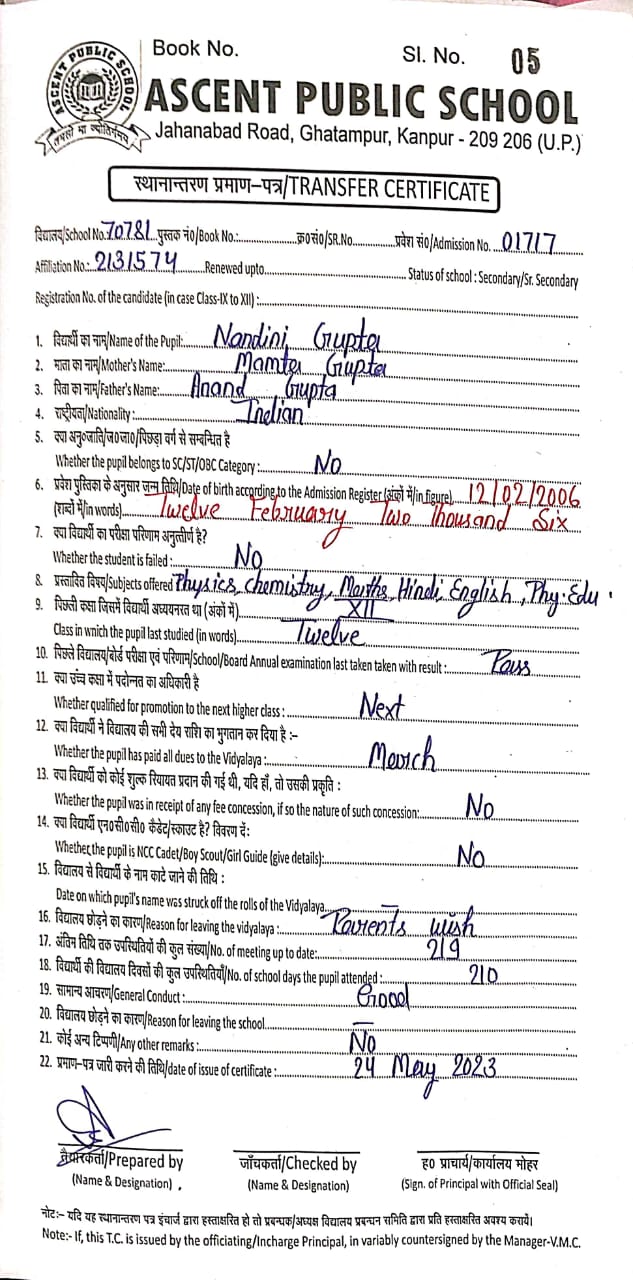 Book No. Sl. No. 05
ASCENT PUBLIC SCHOOL
तमसो मा ज्योतिर्गमय
ASCENT PUBLIC SCHOOL
Jahanabad Road, Ghatampur, Kanpur - 209 206 (U.P.)
स्थानान्तरण प्रमाण–पत्र/TRANSFER CERTIFICATE
विद्यालय/School No. 70781 पुस्तक नं०/Book No.: क्र०सं०/SR.No. प्रवेश सं०/Admission No. 01717
Affiliation No.: 2131574 Renewed upto Status of school : Secondary/Sr. Secondary
Registration No. of the candidate (in case Class-IX to XII) :
1. विद्यार्थी का नाम/Name of the Pupil: Nandini Gupta
2. माता का नाम/Mother's Name: Mamta Gupta
3. पिता का नाम/Father's Name: Anand Gupta
4. राष्ट्रीयता/Nationality : Indian
5. क्या अनु०जाति/ज०जा०/पिछड़ा वर्ग से सम्बन्धित है
Whether the pupil belongs to SC/ST/OBC Category : No
6. प्रवेश पुस्तिका के अनुसार जन्म तिथि/Date of birth according to the Admission Register (अंकों में/in figure) 12/02/2006
(शब्दों में/in words) Twelve February Two Thousand Six
7. क्या विद्यार्थी का परीक्षा परिणाम अनुत्तीर्ण है?
Whether the student is failed : No
8. प्रस्तावित विषय/Subjects offered Physics, Chemistry, Maths, Hindi, English, Phy. Edu.
9. पिछली कक्षा जिसमें विद्यार्थी अध्ययनरत था (अंकों में) XII
Class in wnich the pupil last studied (in words) Twelve
10. पिछले विद्यालय/बोर्ड परीक्षा एवं परिणाम/School/Board Annual examination last taken taken with result : Pass
11. क्या उच्च कक्षा में पदोन्नत का अधिकारी है
Whether qualified for promotion to the next higher class : Next
12. क्या विद्यार्थी ने विद्यालय की सभी देय राशि का भुगतान कर दिया है :-
Whether the pupil has paid all dues to the Vidyalaya : March
13. क्या विद्यार्थी को कोई शुल्क रियायत प्रदान की गई थी, यदि हाँ, तो उसकी प्रकृति :
Whether the pupil was in receipt of any fee concession, if so the nature of such concession: No
14. क्या विद्यार्थी एन०सी०सी० कैडेट/स्काउट है? विवरण दें:
Whether, the pupil is NCC Cadet/Boy Scout/Girl Guide (give details): No
15. विद्यालय से विद्यार्थी के नाम काटे जाने की तिथि :
Date on which pupil's name was struck off the rolls of the Vidyalaya —
16. विद्यालय छोड़ने का कारण/Reason for leaving the vidyalaya : Parents wish
17. अंतिम तिथि तक उपस्थितियों की कुल संख्या/No. of meeting up to date: 219
18. विद्यार्थी की विद्यालय दिवसों की कुल उपस्थितियाँ/No. of school days the pupil attended : 210
19. सामान्य आचरण/General Conduct : Good
20. विद्यालय छोड़ने का कारण/Reason for leaving the school —
21. कोई अन्य टिप्पणी/Any other remarks : No
22. प्रमाण–पत्र जारी करने की तिथि/date of issue of certificate : 24 May 2023
तैयारकर्ता/Prepared by जाँचकर्ता/Checked by ह० प्राचार्य/कार्यालय मोहर
(Name & Designation) . (Name & Designation) (Sign. of Principal with Official Seal)
नोट:- यदि यह स्थानान्तरण पत्र इंचार्ज द्वारा हस्ताक्षरित हो तो प्रबन्धक/अध्यक्ष विद्यालय प्रबन्धन समिति द्वारा प्रति हस्ताक्षरित अवश्य करायें।
Note:- If, this T.C. is issued by the officiating/Incharge Principal, in variably countersigned by the Manager-V.M.C.